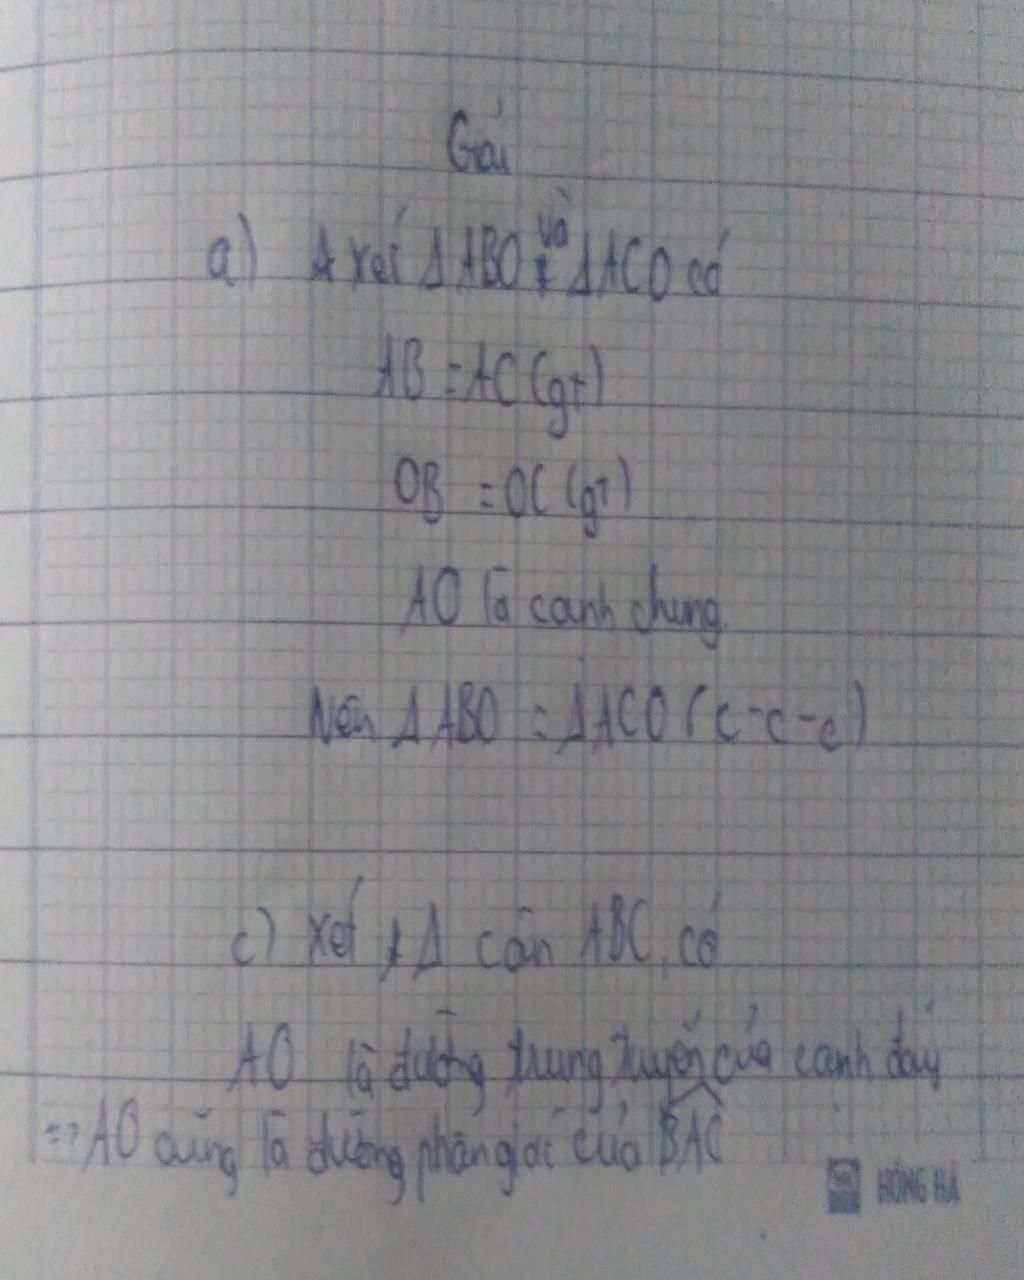 Giải
a) Xét Δ ABO và Δ ACO có
AB = AC (gt)
OB = OC (gt)
AO là cạnh chung.
Nên Δ ABO = Δ ACO (c-c-c)
c) Xét Δ cân ABC, có
AO là đường trung tuyến của cạnh đáy
=> AO cũng là đường phân giác của BAC
HỒNG HÀ